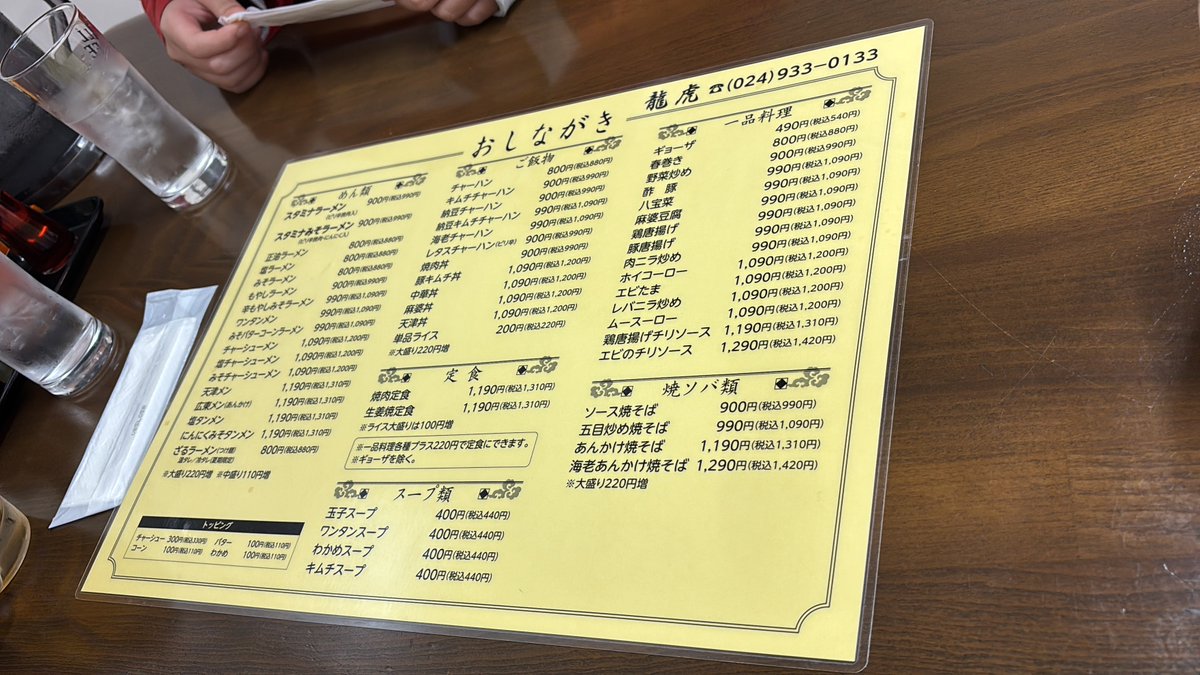 おしながき 龍虎 ☎(024)933-0133
めん類
スタミナラーメン 900円(税込990円)
(ピリ辛焼肉入)
スタミナみそラーメン 900円(税込990円)
(ピリ辛焼肉・にんにく入)
正油ラーメン 800円(税込880円)
塩ラーメン 800円(税込880円)
みそラーメン 800円(税込880円)
もやしラーメン 900円(税込990円)
辛もやしみそラーメン 990円(税込1,090円)
ワンタンメン 990円(税込1,090円)
みそバターコーンラーメン 990円(税込1,090円)
チャーシューメン 1,090円(税込1,200円)
塩チャーシューメン 1,090円(税込1,200円)
みそチャーシューメン 1,090円(税込1,200円)
天津メン 1,190円(税込1,310円)
広東メン(あんかけ) 1,190円(税込1,310円)
塩タンメン 1,190円(税込1,310円)
にんにくみそタンメン 1,190円(税込1,310円)
ざるラーメン(つけ麺) 800円(税込880円)
温タレ/冷タレ(夏期限定)
※大盛り220円増 ※中盛り110円増
トッピング
チャーシュー 300円(税込330円) バター 100円(税込110円)
コーン 100円(税込110円) わかめ 100円(税込110円)
ご飯物
チャーハン 800円(税込880円)
キムチチャーハン 900円(税込990円)
納豆チャーハン 900円(税込990円)
納豆キムチチャーハン 990円(税込1,090円)
海老チャーハン 990円(税込1,090円)
レタスチャーハン(ピリ辛) 900円(税込990円)
焼肉丼 900円(税込990円)
豚キムチ丼 1,090円(税込1,200円)
中華丼 1,090円(税込1,200円)
麻婆丼 1,090円(税込1,200円)
天津丼 1,090円(税込1,200円)
単品ライス 200円(税込220円)
※大盛り220円増
定食
焼肉定食 1,190円(税込1,310円)
生姜焼定食 1,190円(税込1,310円)
※ライス大盛りは100円増
※一品料理各種プラス220円で定食にできます。
※ギョーザを除く。
スープ類
玉子スープ 400円(税込440円)
ワンタンスープ 400円(税込440円)
わかめスープ 400円(税込440円)
キムチスープ 400円(税込440円)
一品料理
ギョーザ 490円(税込540円)
春巻き 800円(税込880円)
野菜炒め 900円(税込990円)
酢豚 990円(税込1,090円)
八宝菜 990円(税込1,090円)
麻婆豆腐 990円(税込1,090円)
鶏唐揚げ 990円(税込1,090円)
豚唐揚げ 990円(税込1,090円)
肉ニラ炒め 990円(税込1,090円)
ホイコーロー 1,090円(税込1,200円)
エビたま 1,090円(税込1,200円)
レバニラ炒め 1,090円(税込1,200円)
ムースーロー 1,090円(税込1,200円)
鶏唐揚げチリソース 1,190円(税込1,310円)
エビのチリソース 1,290円(税込1,420円)
焼ソバ類
ソース焼そば 900円(税込990円)
五目炒め焼そば 990円(税込1,090円)
あんかけ焼そば 1,190円(税込1,310円)
海老あんかけ焼そば 1,290円(税込1,420円)
※大盛り220円増